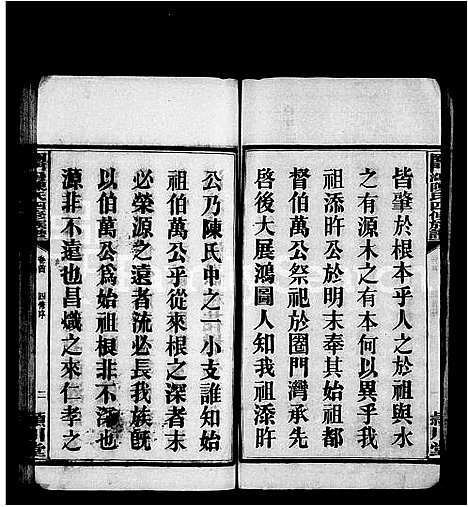 皆肇於根本乎人之於祖與水
之有源木之有本何以異乎我
祖添旿公於明末奉其始祖都
祖伯萬公祭祀於圈門灣承先
啓後大展鴻圖人知我祖添旿
公乃陳氏中之一小支誰知始
祖伯萬公乎從來根之深者末
必榮源之遠者流必長我族旣
以伯萬公爲始祖根非不深也
源非不遠也昌熾之來仁孝之
卷首
四修序
二
潁川堂